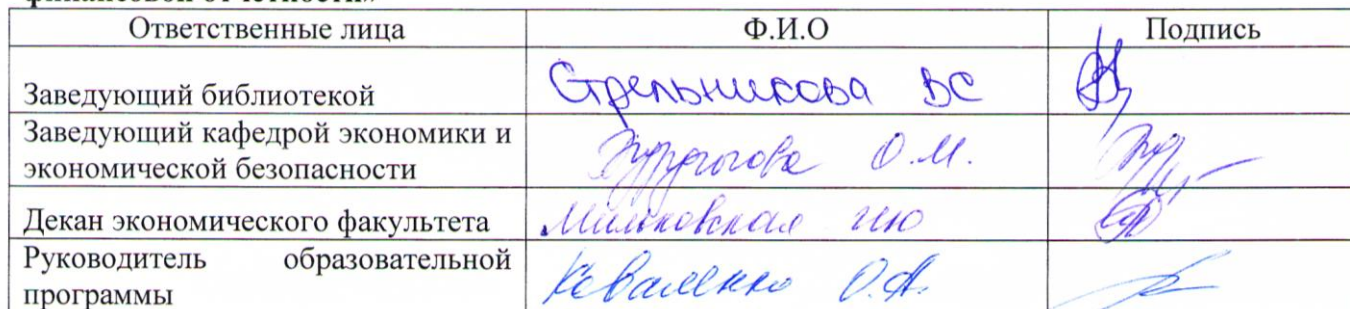 Ответственные лица Ф.И.О Подпись
Заведующий библиотекой Стрельникова ВС
Заведующий кафедрой экономики и
экономической безопасности О.М.
Декан экономического факультета Мильковская
Руководитель образовательной
программы Коваленко О.А.